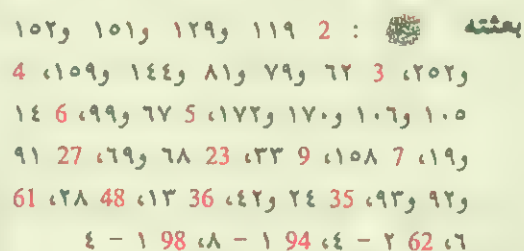 بعثته ﷺ : 2 ١١٩ و١٢٩ و١٥١ و١٥٢
و٢٥٢، 3 ٦٢ و٧٩ و٨١ و١٤٤ و١٥٩، 4
١٠٥ و١٠٦ و١٧٠ و١٧٢، 5 ٦٧ و٩٩، 6 ١٤
و١٩، 7 ١٥٨، 9 ٣٣، 23 ٦٨ و٦٩، 27 ٩١
و٩٢ و٩٣، 35 ٢٤ و٤٢، 36 ١٣، 48 ٢٨، 61
٦، 62 ٢ – ٤، 94 ١ – ٨، 98 ١ – ٤